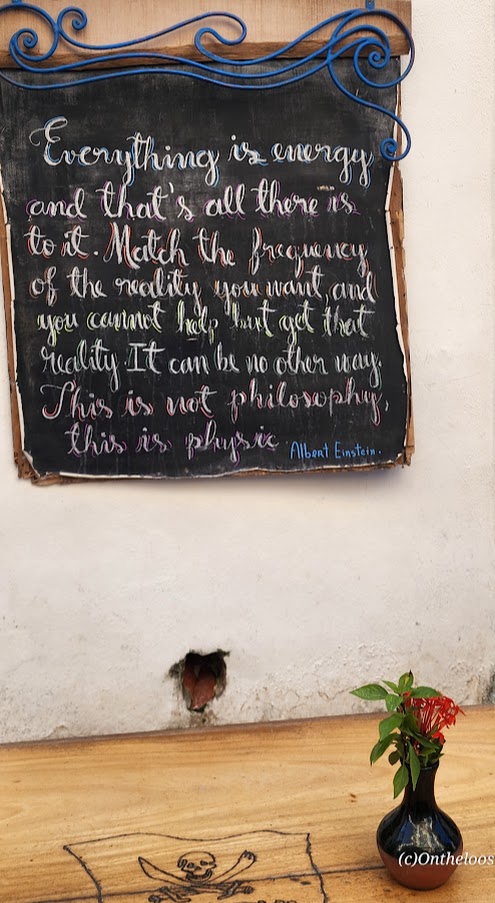 Everything is energy
and that's all there is
to it. Match the frequency
of the reality you want, and
you cannot help but get that
reality It can be no other way.
This is not philosophy,
this is physic
Albert Einstein.
(c)Ontheloos